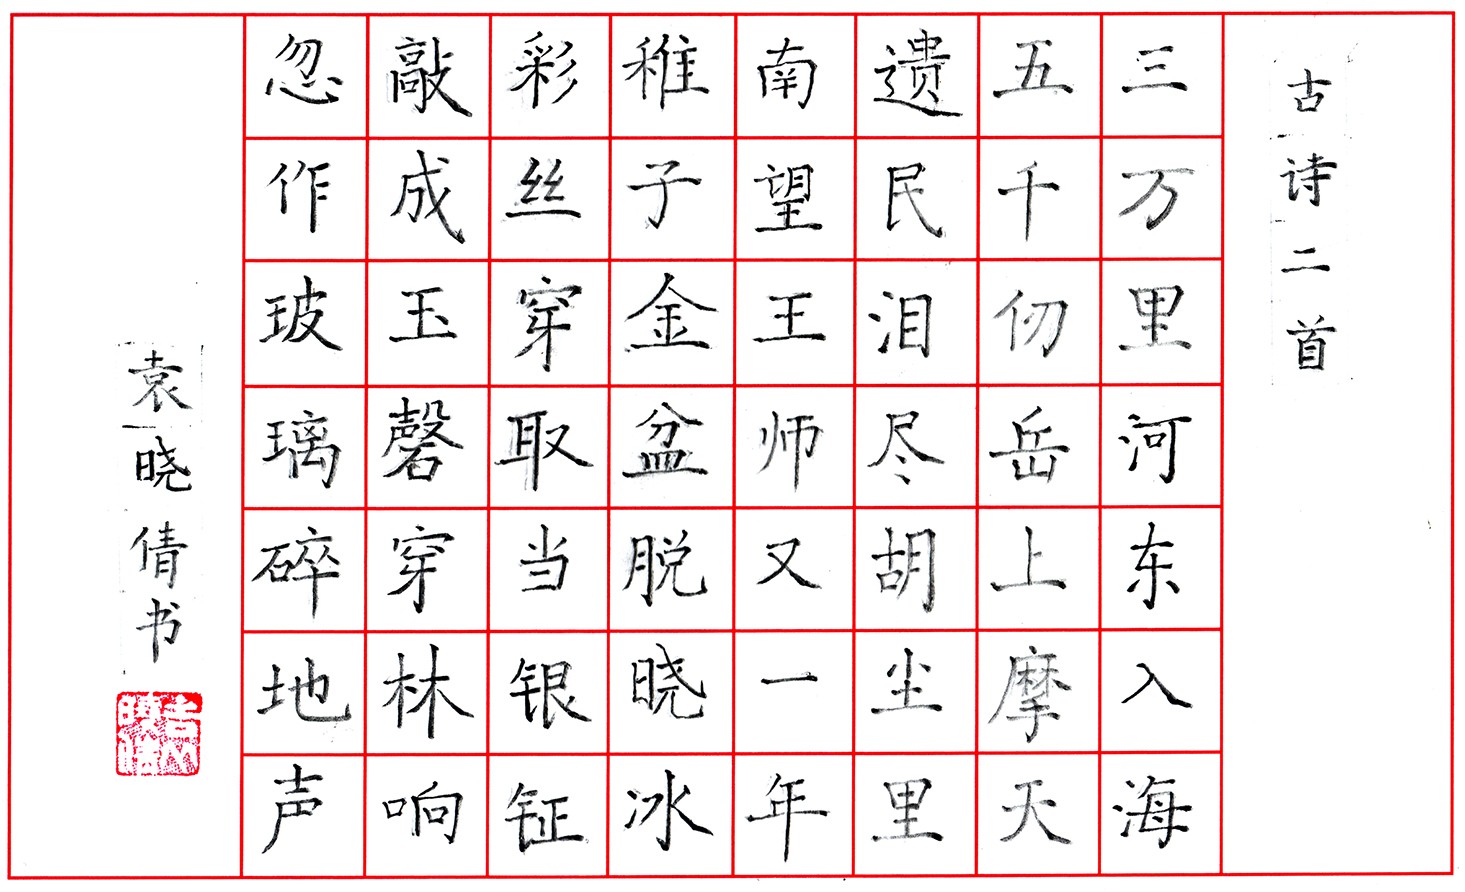 古诗二首
三万里河东入海
五千仞岳上摩天
遗民泪尽胡尘里
南望王师又一年
稚子金盆脱晓冰
彩丝穿取当银钲
敲成玉磬穿林响
忽作玻璃碎地声
袁晓倩书